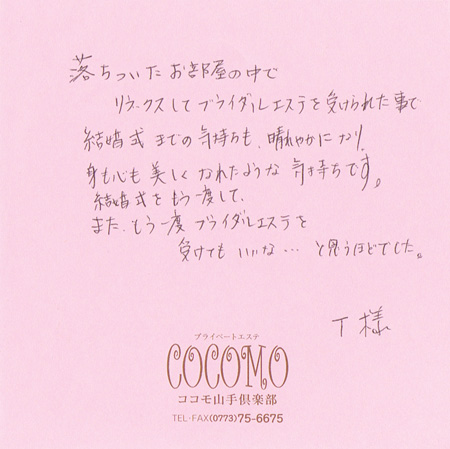 落ちついたお部屋の中で
リラックスしてブライダルエステを受けられた事で
結婚式までの気持ちも、晴れやかになり、
身も心も美しくなれたような気持ちです。
結婚式をもう一度して、
また、もう一度ブライダルエステを
受けてもいいな…と思うほどでした。
T様
プライベートエステ
COCOMO
ココモ山手倶楽部
TEL-FAX(0773)75-6675